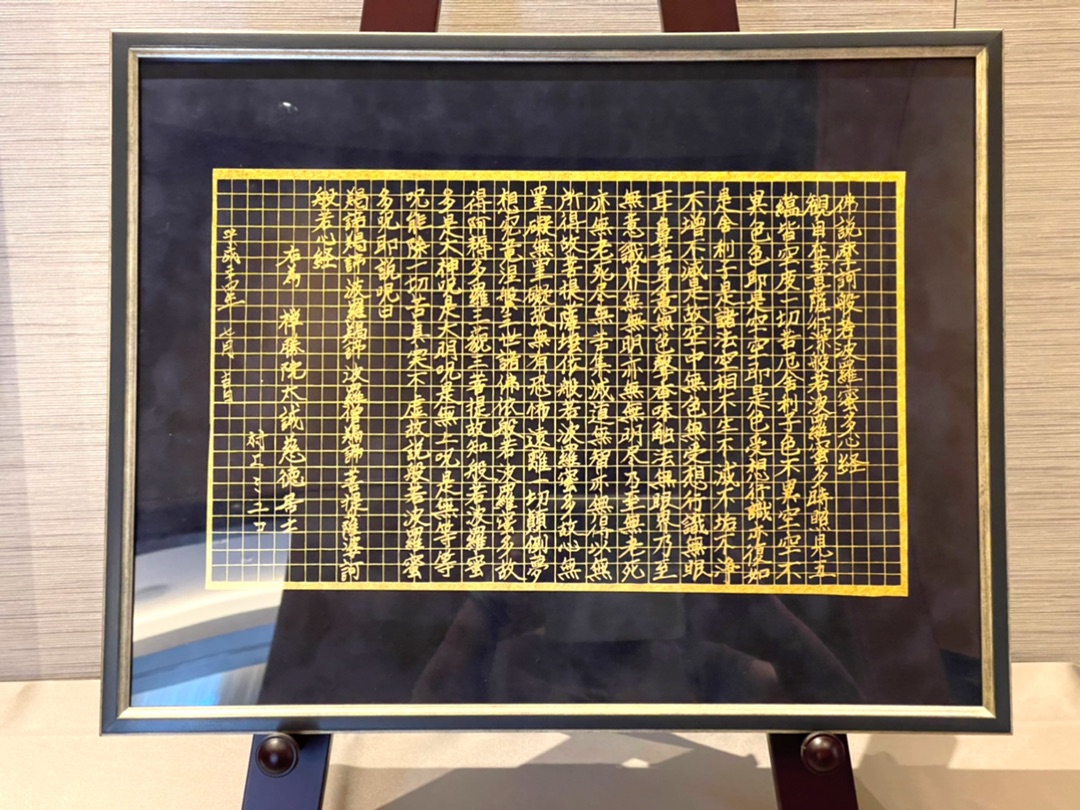 佛説摩訶般若波羅蜜多心経
観自在菩薩行深般若波羅蜜多時照見五
蘊皆空度一切苦厄舎利子色不異空空不
異色色即是空空即是色受想行識亦復如
是舎利子是諸法空相不生不滅不垢不浄
不増不減是故空中無色無受想行識無眼
耳鼻舌身意無色聲香味触法無眼界乃至
無意識界無無明亦無無明尽乃至無老死
亦無老死尽無苦集滅道無智亦無得以無
所得故菩提薩埵依般若波羅蜜多故心無
罣礙無罣礙故無有恐怖遠離一切顛倒夢
想究竟涅槃三世諸佛依般若波羅蜜多故
得阿耨多羅三藐三菩提故知般若波羅蜜
多是大神呪是大明呪是無上呪是無等等
呪能除一切苦真実不虚故説般若波羅蜜
多呪即説呪曰
羯諦羯諦波羅羯諦波羅僧羯諦菩提薩婆訶
般若心経
右為 禅勝院水誠慈徳居士
村上
平成 年 七月 吉日